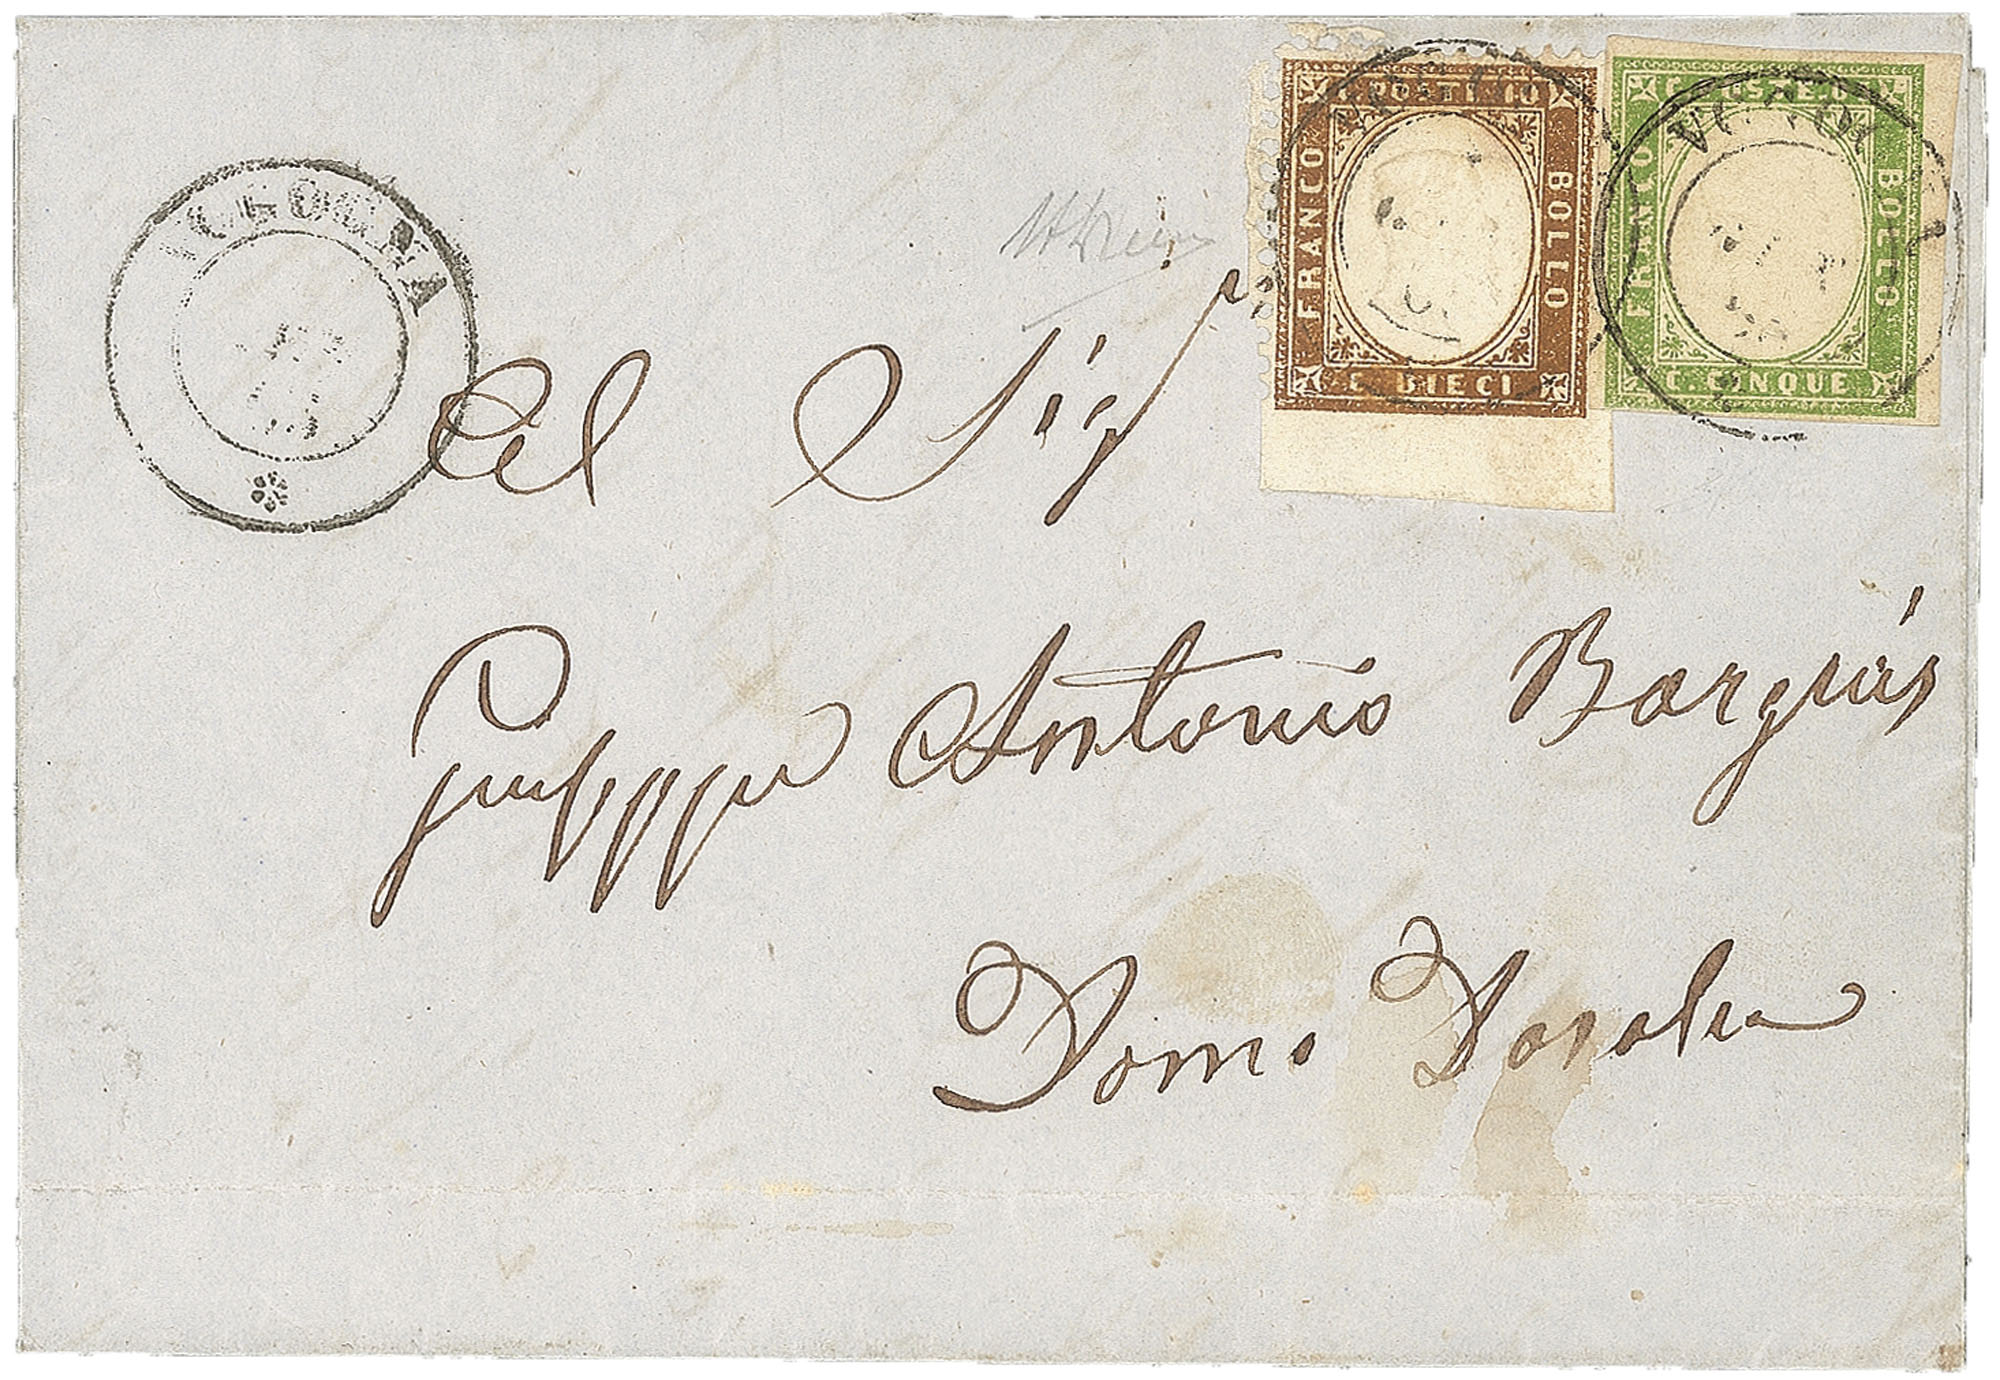 VOGOGNA
C. POSTE 10
FRANCO
BOLLO
C. DIECI
FRANCO
BOLLO
C. CINQUE
Al Sigr
Giuseppe Antonio Borgnis
Domo Dossola